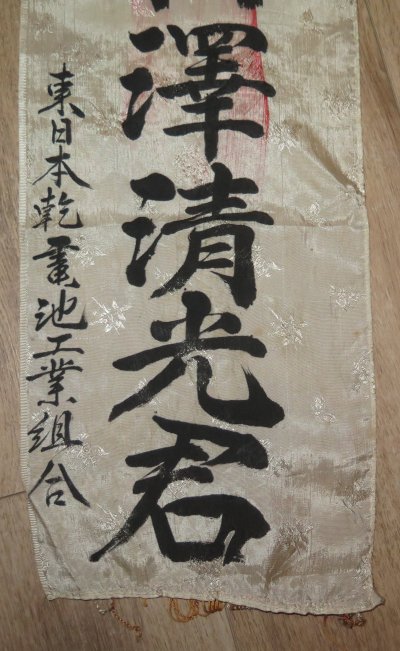 澤清光君
東日本乾電池工業組合